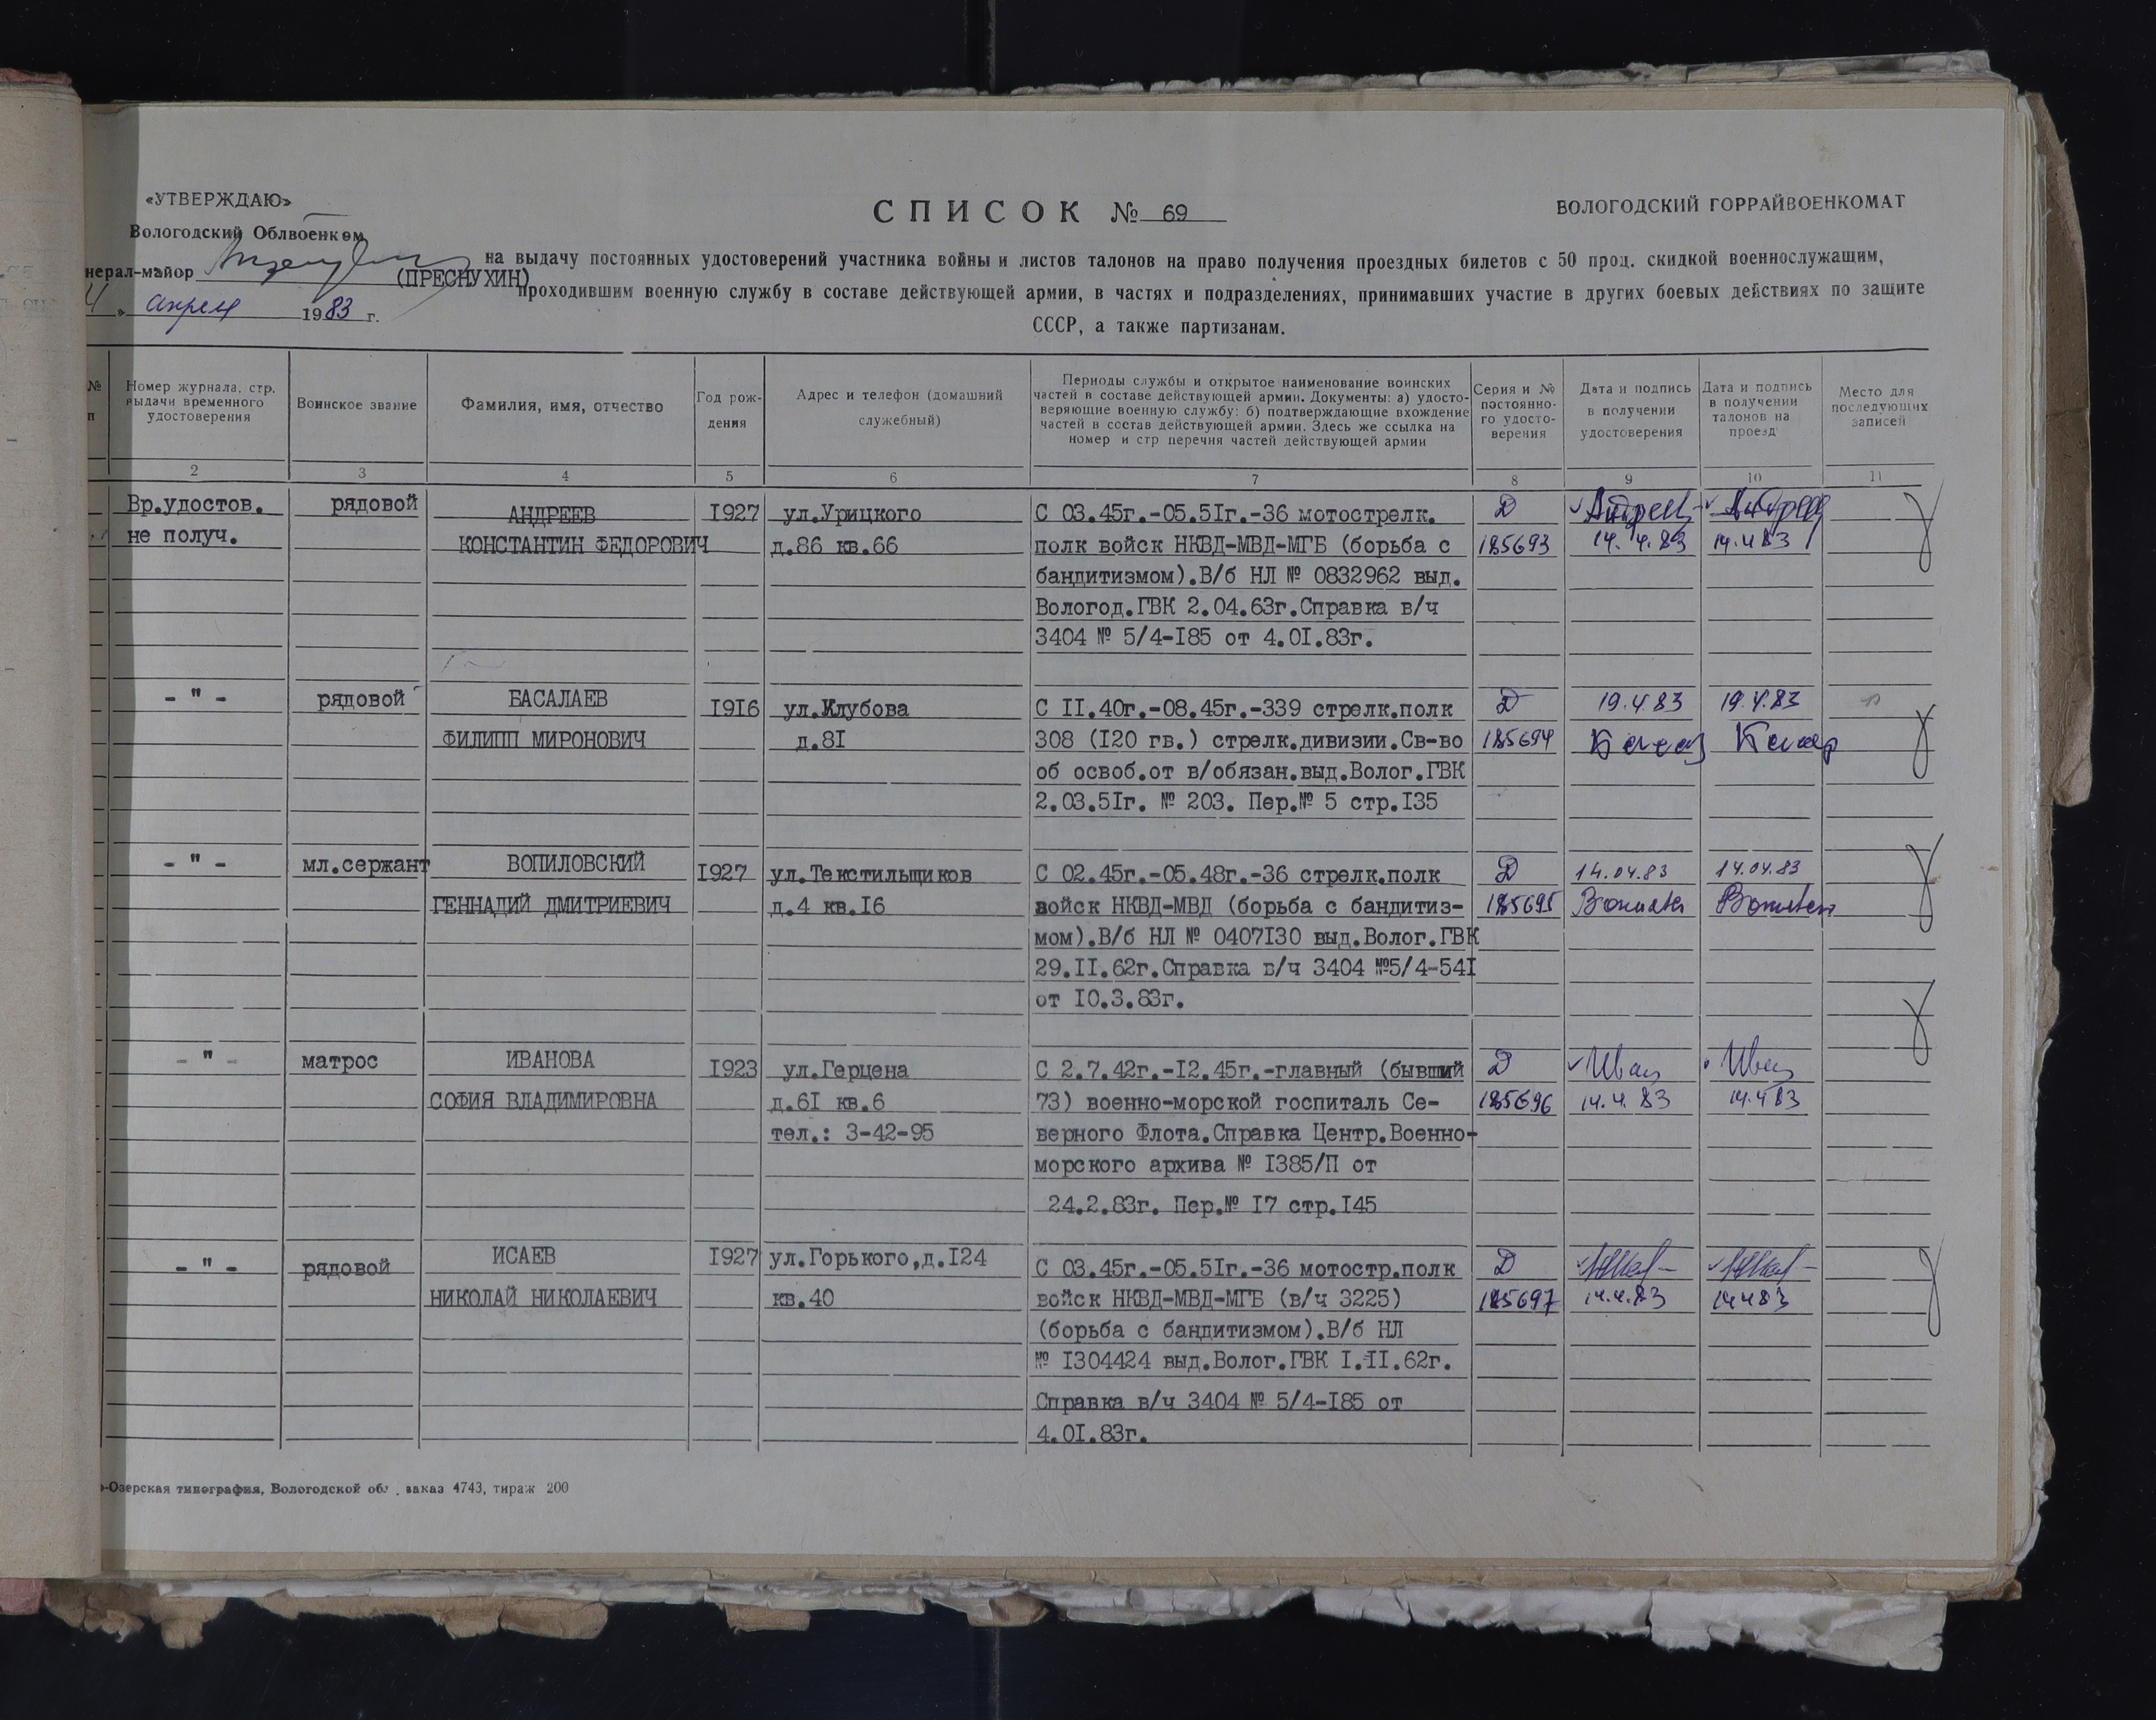 «УТВЕРЖДАЮ»
Вологодский Облвоенком
нерал-майор (ПРЕСНУХИН)
апреля 1983 г.
СПИСОК № 69
ВОЛОГОДСКИЙ ГОРРАЙВОЕНКОМАТ
на выдачу постоянных удостоверений участника войны и листов талонов на право получения проездных билетов с 50 прод. скидкой военнослужащим,
проходившим военную службу в составе действующей армии, в частях и подразделениях, принимавших участие в других боевых действиях по защите
СССР, а также партизанам.
№
п
Номер журнала, стр.
выдачи временного
удостоверения
Воинское звание
Фамилия, имя, отчество
Год рож-
дения
Адрес и телефон (домашний
служебный)
Периоды службы и открытое наименование воинских
частей в составе действующей армии. Документы: а) удосто-
веряющие военную службу: б) подтверждающие вхождение
частей в состав действующей армии. Здесь же ссылка на
номер и стр перечня частей действующей армии
Серия и №
постоянно-
го удосто-
верения
Дата и подпись
в получении
удостоверения
Дата и подпись
в получении
талонов на
проезд
Место для
последующих
записей
2 3 4 5 6 7 8 9 10 11
Вр.удостов.
не получ.
рядовой
АНДРЕЕВ
КОНСТАНТИН ФЕДОРОВИЧ
I927
ул.Урицкого
д.86 кв.66
С 03.45г.-05.5Iг.-36 мотострелк.
полк войск НКВД-МВД-МГБ (борьба с
бандитизмом).В/б НЛ № 0832962 выд.
Вологод.ГВК 2.04.63г.Справка в/ч
3404 № 5/4-I85 от 4.0I.83г.
Д
185693
14.4.83
14.4.83
- " -
рядовой
БАСАЛАЕВ
ФИЛИПП МИРОНОВИЧ
I9I6
ул.Клубова
д.8I
С II.40г.-08.45г.-339 стрелк.полк
308 (I20 гв.) стрелк.дивизии.Св-во
об освоб.от в/обязан.выд.Волог.ГВК
2.03.5Iг. № 203. Пер.№ 5 стр.I35
Д
185694
19.4.83
19.4.83
- " -
мл.сержант
ВОПИЛОВСКИЙ
ГЕННАДИЙ ДМИТРИЕВИЧ
I927
ул.Текстильщиков
д.4 кв.I6
С 02.45г.-05.48г.-36 стрелк.полк
войск НКВД-МВД (борьба с бандитиз-
мом).В/б НЛ № 0407I30 выд.Волог.ГВК
29.II.62г.Справка в/ч 3404 №5/4-54I
от I0.3.83г.
Д
185695
14.04.83
14.04.83
- " -
матрос
ИВАНОВА
СОФИЯ ВЛАДИМИРОВНА
I923
ул.Герцена
д.6I кв.6
тел.: 3-42-95
С 2.7.42г.-I2.45г.-главный (бывший
73) военно-морской госпиталь Се-
верного Флота.Справка Центр.Военно-
морского архива № I385/П от
24.2.83г. Пер.№ I7 стр.I45
Д
185696
14.4.83
14.4.83
- " -
рядовой
ИСАЕВ
НИКОЛАЙ НИКОЛАЕВИЧ
I927
ул.Горького,д.I24
кв.40
С 03.45г.-05.5Iг.-36 мотостр.полк
войск НКВД-МВД-МГБ (в/ч 3225)
(борьба с бандитизмом).В/б НЛ
№ I304424 выд.Волог.ГВК I.II.62г.
Справка в/ч 3404 № 5/4-I85 от
4.0I.83г.
Д
185697
14.4.83
14.4.83
-Озерская типография, Вологодской об заказ 4743, тираж 200